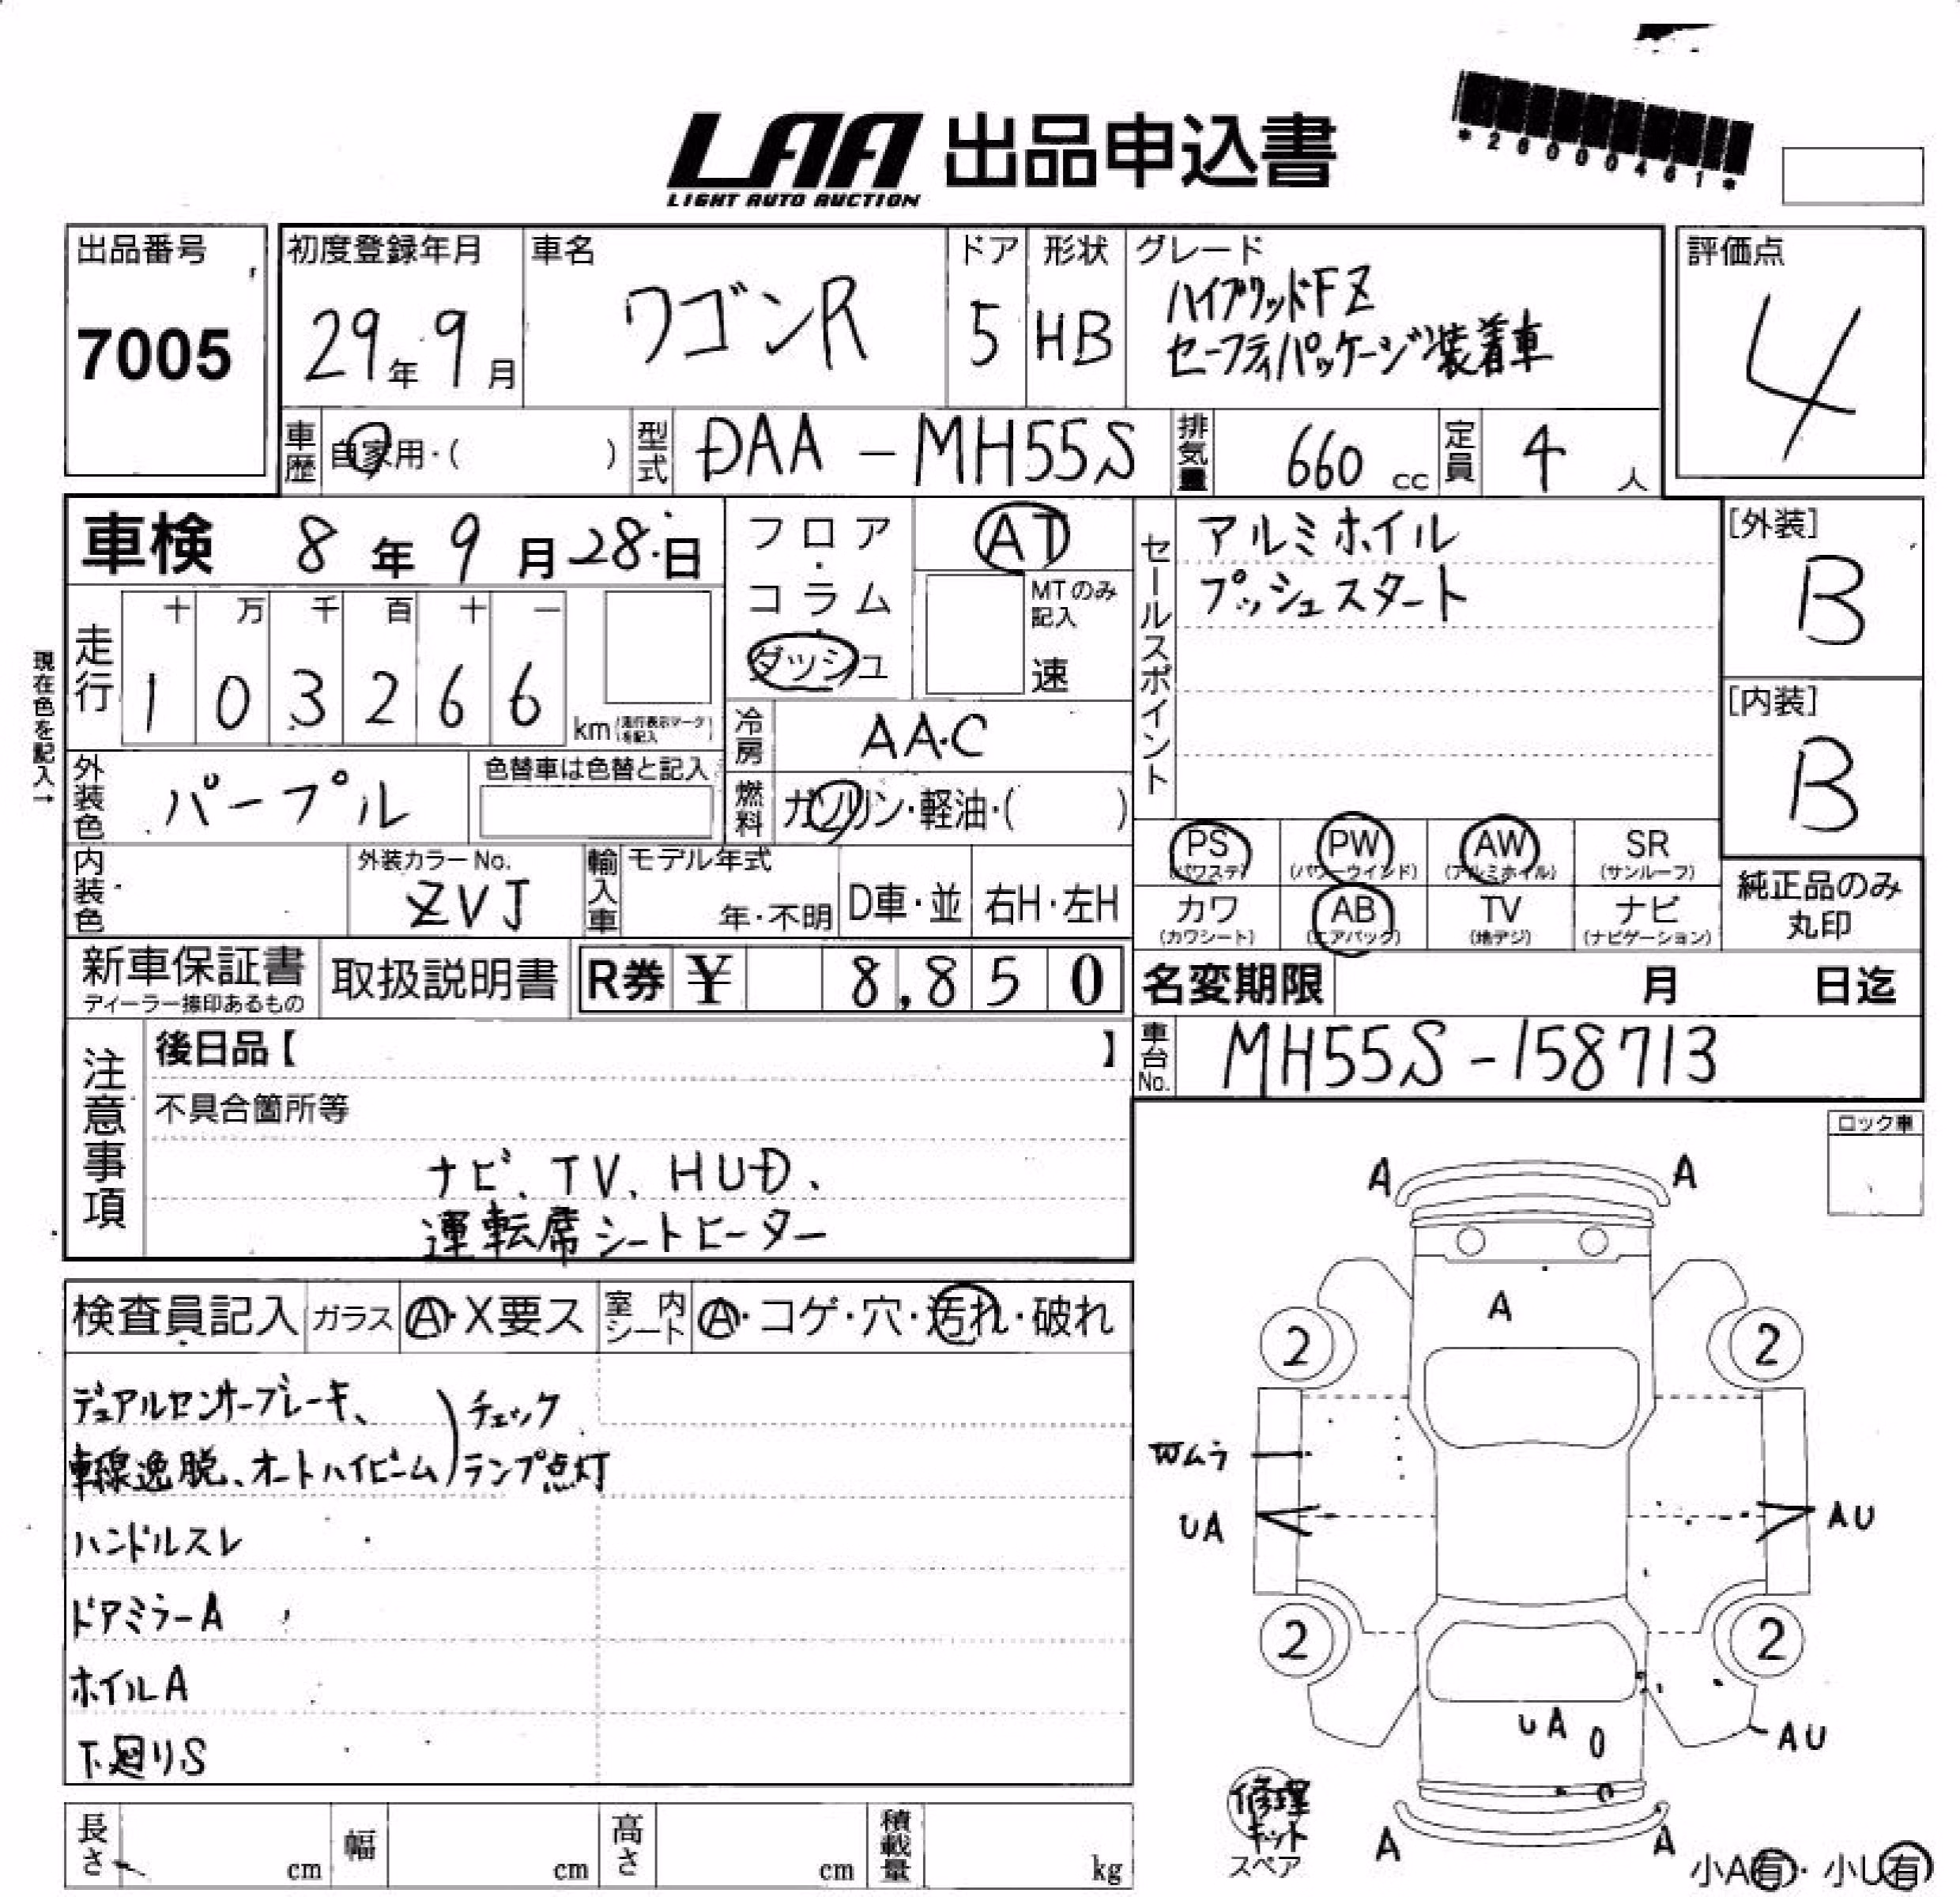 LAA 出品申込書
LIGHT AUTO AUCTION
*26000461*
出品番号
7005
初度登録年月
29年 9月
車名
ワゴンR
ドア
5
形状
HB
グレード
ハイブリッドFZ
セーフティパッケージ装着車
評価点
4
車歴
自家用・( )
型式
DAA-MH55S
排気量
660 cc
定員
4 人
車検 8年 9月 28日
フロア・コラム・ダッシュ
AT
MTのみ記入
速
走行
十 万 千 百 十 一
1 0 3 2 6 6
km
(走行表示マークを記入)
現在色を記入→
冷房
AAC
燃料
ガソリン・軽油・( )
外装色
パープル
色替車は色替と記入
内装色
外装カラーNo.
ZVJ
輸入車
モデル年式
年・不明
D車・並
右H・左H
セールスポイント
アルミホイル
プッシュスタート
[外装]
B
[内装]
B
PS (パワステ)
PW (パワーウインド)
AW (アルミホイル)
SR (サンルーフ)
カワ (カワシート)
AB (エアバック)
TV (地デジ)
ナビ (ナビゲーション)
純正品のみ丸印
新車保証書
ディーラー捺印あるもの
取扱説明書
R券 ¥ 8,850
名変期限 月 日迄
車台No.
MH55S-158713
注意事項
後日品【 】
不具合箇所等
ナビ、TV、HUD、
運転席シートヒーター
ロック車
検査員記入
ガラス
A・X要ス
室内シート
A・コゲ・穴・汚れ・破れ
デュアルセンサーブレーキ、
車線逸脱、オートハイビーム)チェックランプ点灯
ハンドルスレ
ドアミラーA
ホイルA
下廻りS
A A
A
2 2
Wムラ
UA AU
2 2
UA
AU
A A
修理キット
スペア
小A有・小U有
長さ cm
幅 cm
高さ cm
積載量 kg